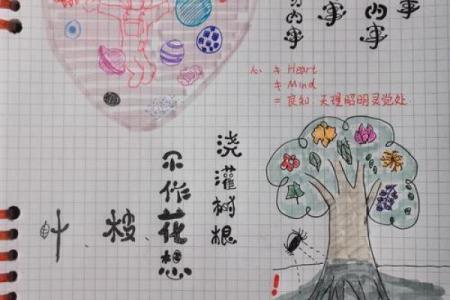 事
内事
事
内事
心 ≠ Heart
≠ Mind
= 良知，天理昭明灵觉处
浇灌树根
不作花想
、枝
、叶
!